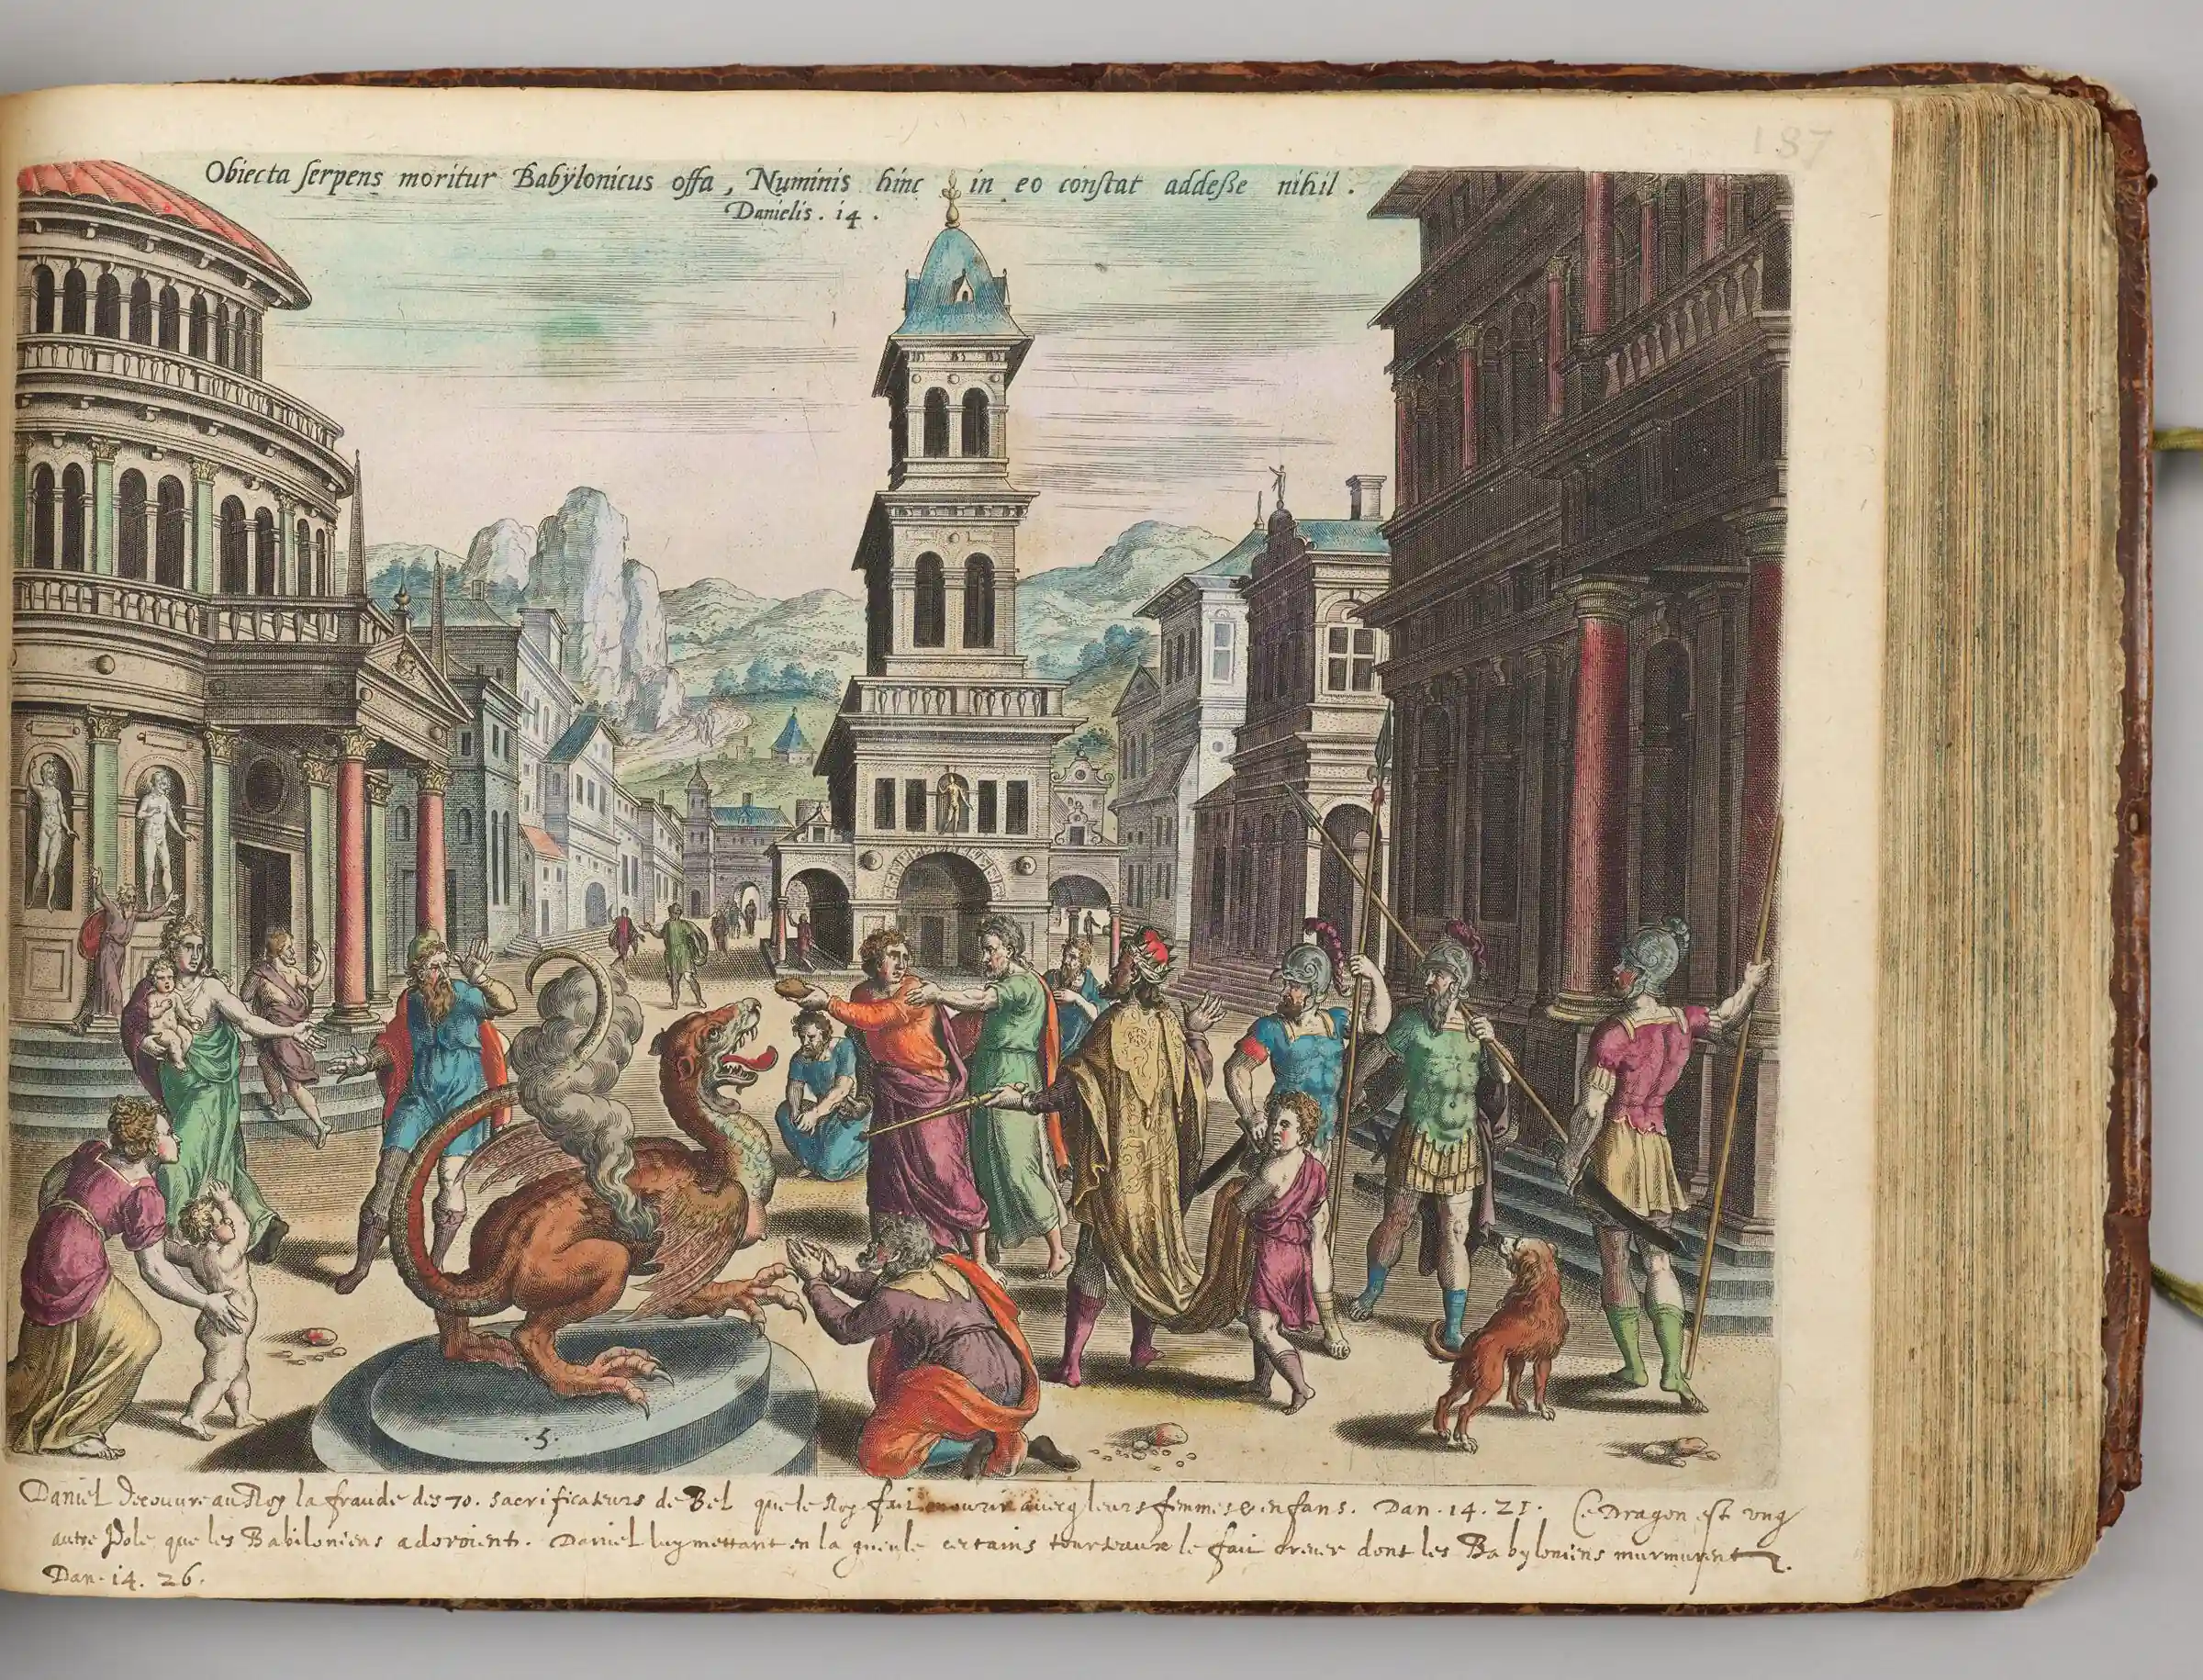 187
Obiecta serpens moritur Babÿlonicus offa, Numinis hinc in eo constat addesse nihil.
Danielis. 14.
.5.
Daniel decouvre au Roy la fraude des 70. sacrificateurs de Bel que le Roy fait mourir avecq leurs femmes & enfans. Dan. 14. 21. Ce Dragon est ung
autre Idole que les Babiloniens adoroient. Daniel luy mettant en la gueule certains tourteaux le fait crever dont les Babyloniens murmurent.
Dan. 14. 26.